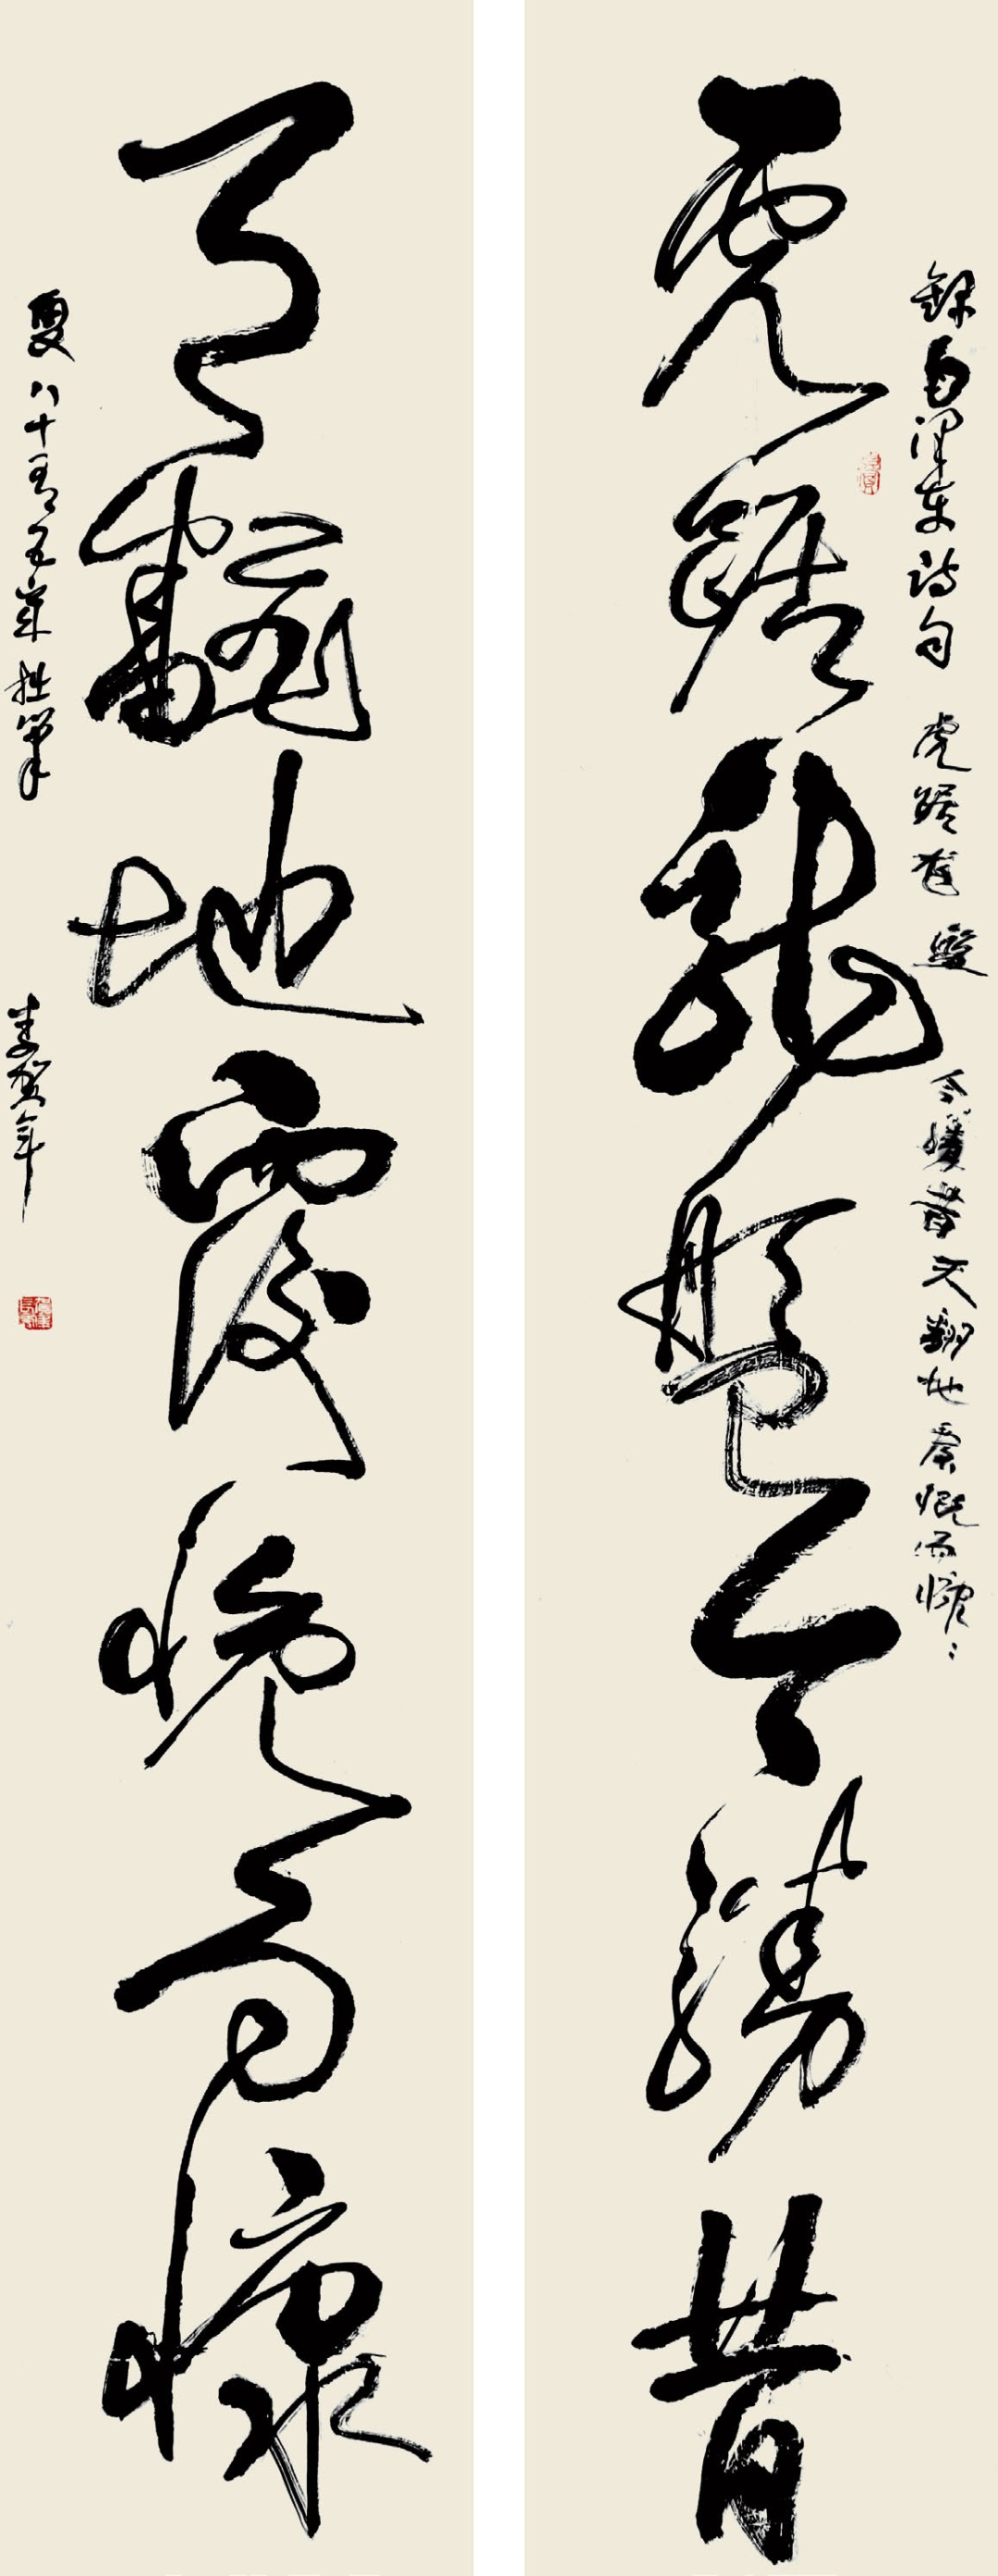 虎踞龙盘今勝昔
天翻地覆慨而慷
録毛泽东詩句 虎踞龙盘 今勝昔天翻地覆慨而慷:
夏八十有五岁拙筆
李贺年